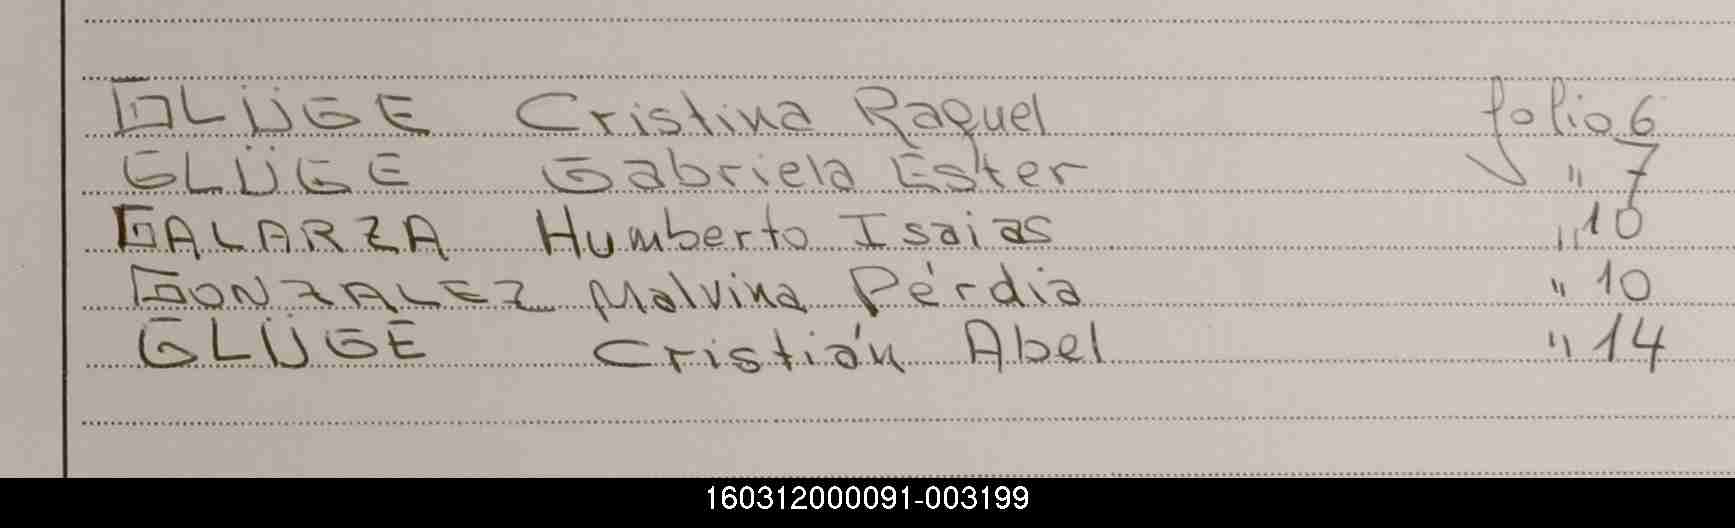 GLÜGE Cristina Raquel folio 6
GLÜGE Gabriela Ester " 7
GALARZA Humberto Isaias " 10
GONZALEZ Malvina Pérdia " 10
GLÜGE Cristián Abel " 14
160312000091-003199